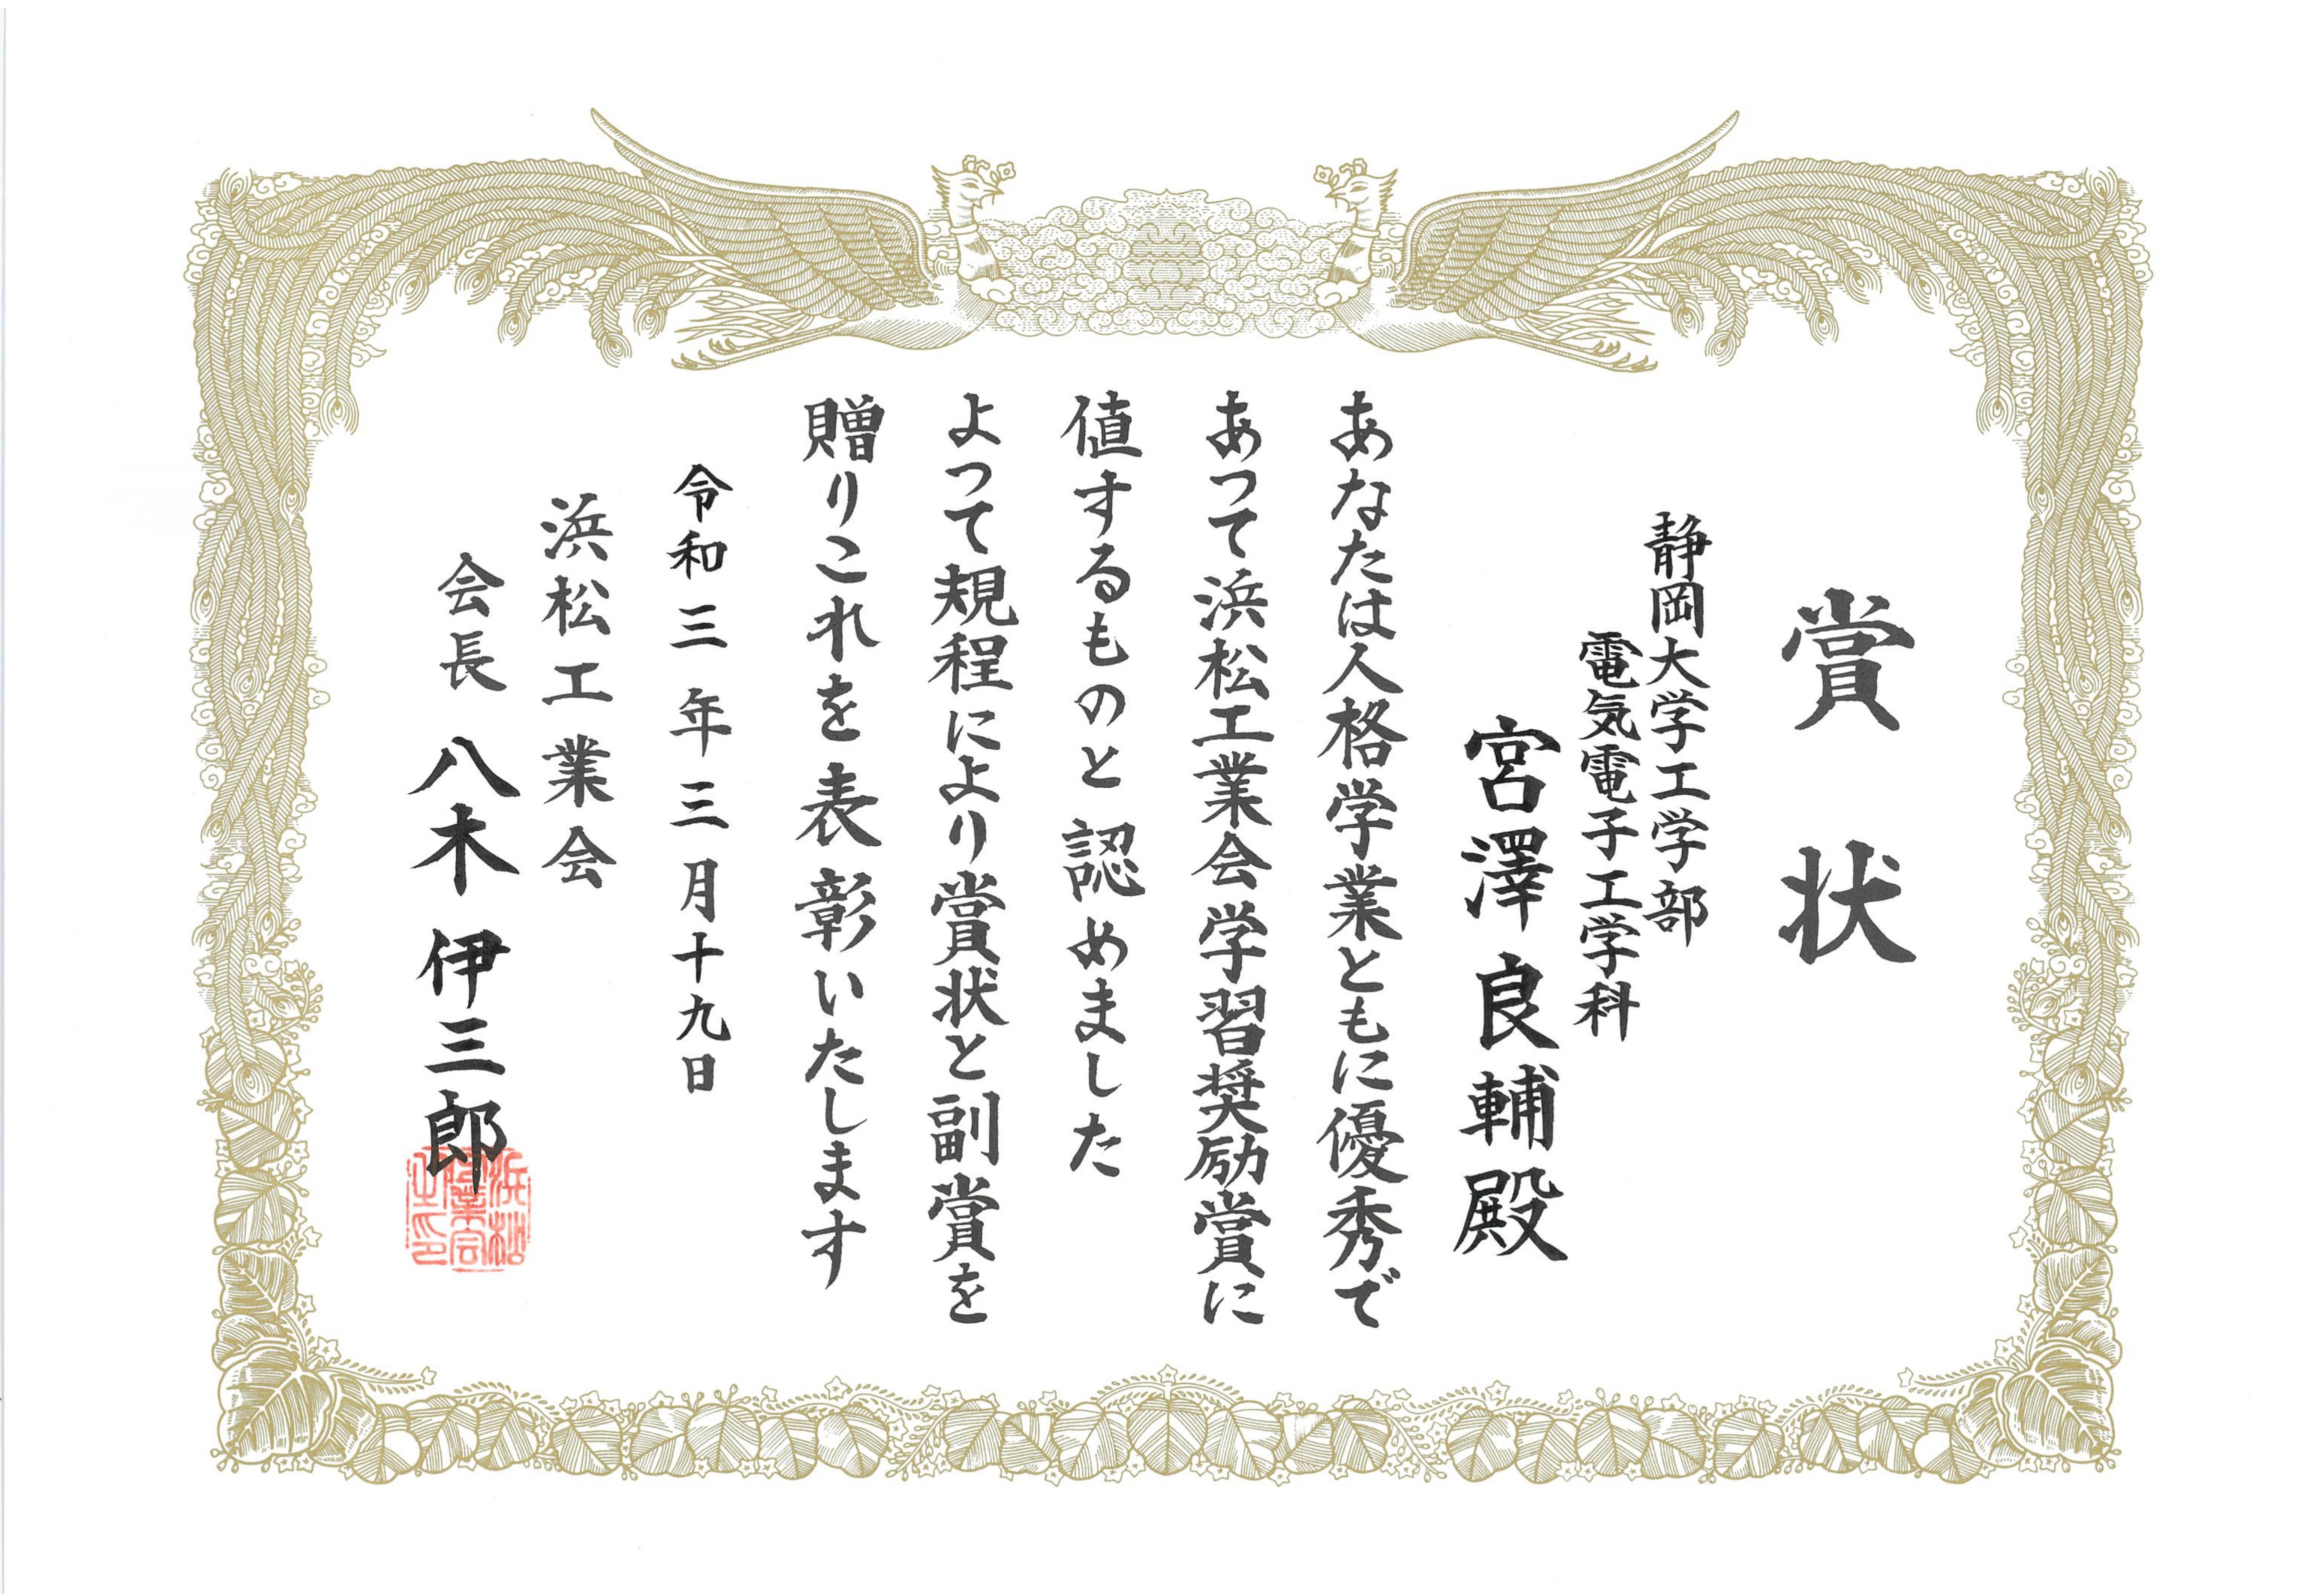 賞状
静岡大学工学部
電気電子工学科
宮澤良輔殿
あなたは人格学業ともに優秀で
あつて浜松工業会学習奨励賞に
値するものと認めました
よつて規程により賞状と副賞を
贈りこれを表彰いたします
令和三年三月十九日
浜松工業会
会長 八木伊三郎
浜松
工業会
之印